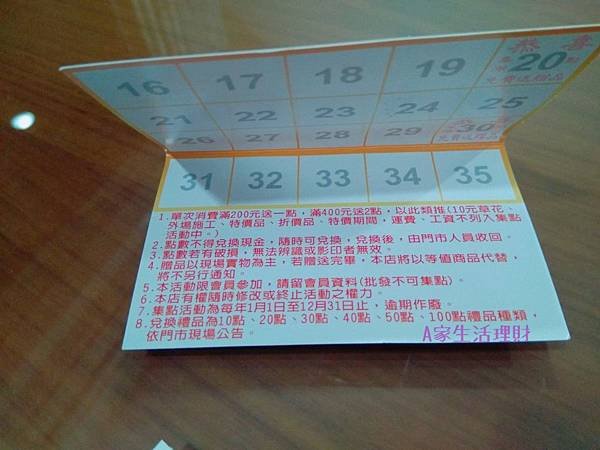 16 17 18 19 恭喜 20點
免費送贈品
21 22 23 24 25
26 27 28 29 30
免費送贈品
31 32 33 34 35
1.單次消費滿200元送一點，滿400元送2點，以此類推(10元草花、
外場施工、特價品、折價品、特價期間，運費、工資不列入集點
活動中。)
2.點數不得兌換現金，隨時可兌換，兌換後，由門市人員收回。
3.點數若有破損，無法辨識或影印者無效。
4.贈品以現場實物為主，若贈送完畢，本店將以等值商品代替，
將不另行通知。
5.本活動限會員參加，請留會員資料(批發不可集點)。
6.本店有權隨時修改或終止活動之權力。
7.集點活動為每年1月1日至12月31日止，逾期作廢。
8.兌換禮品為10點、20點、30點、40點、50點、100點禮品種類，
依門市現場公告。
A家生活理財